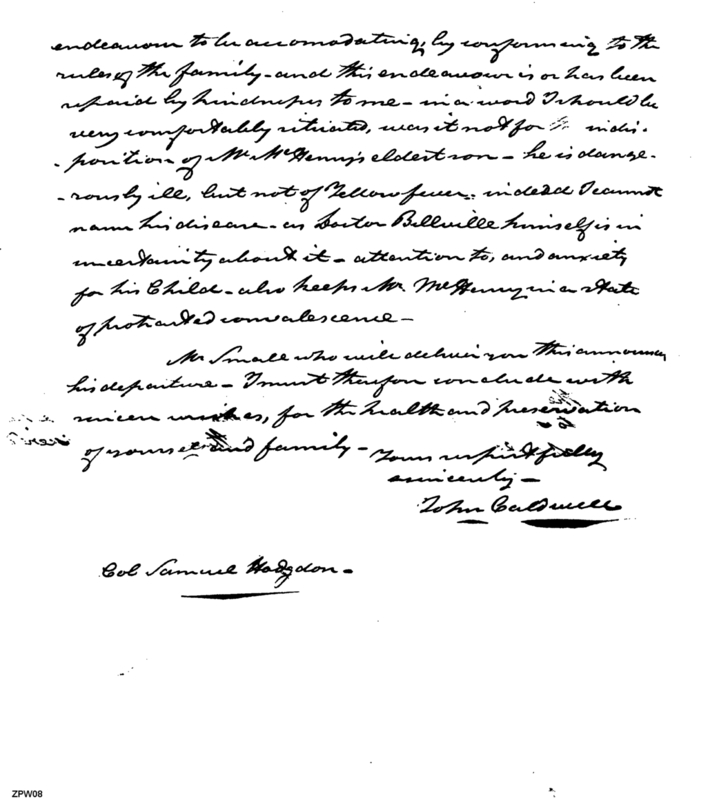 endeavour to be accomodating, by conforming to the
rules of the family - and this endeavour is or has been
repaid by kindness to me - in a word I should be
very comfortably situated, was it not for indis-
- position of Mr. McHenry's eldest son - he is dange-
- rously ill, but not of Yellow fever, indeed I cannot
name his disease - as Doctor Bellville himself is in
uncertainity about it - attention to, and anxiety
for his Child - also keeps Mr. McHenry in a state
of protracted convalescence -
Mr Small who will deliver you this announces
his departure - I must therefore conclude with
sincere wishes, for the health and preservation
of yourself and family - Yours respectfully
sincerely -
John Caldwell
Col Samuel Hodgdon -
ZPW08